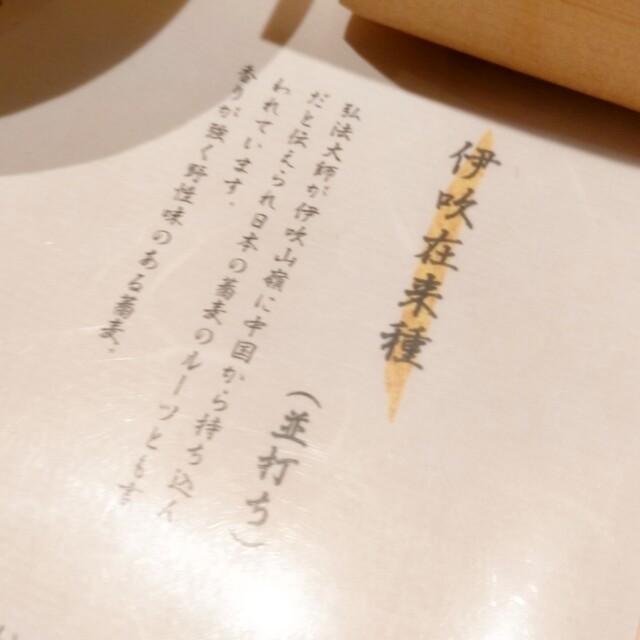 伊吹在来種
(並打ち)
弘法大師が伊吹山嶺に中国から持ち込ん
だと伝えられ日本の蕎麦のルーツとも言
われています。
香りが強く野性味のある蕎麦。